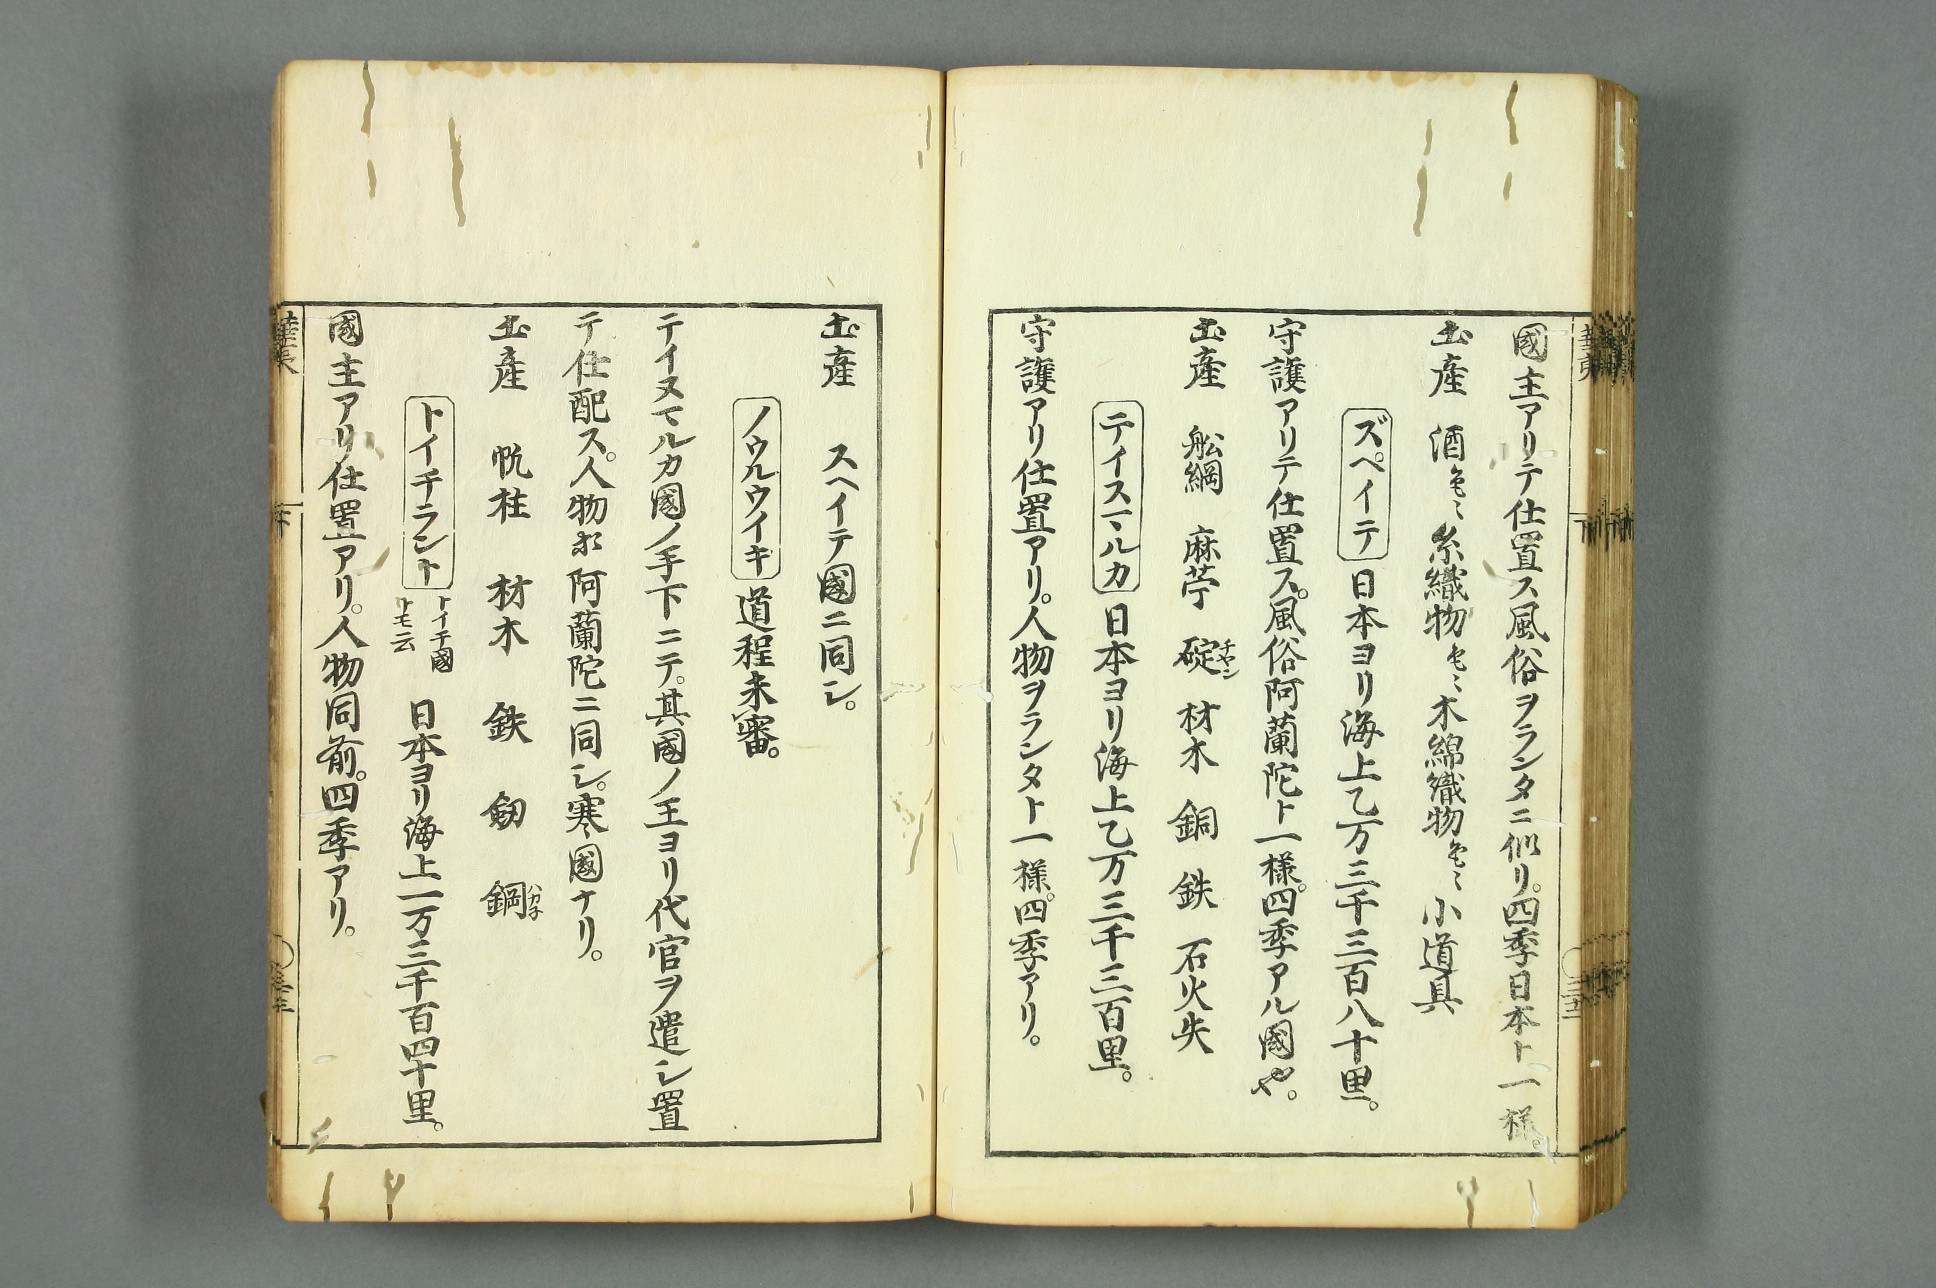 國主アリテ仕置ス風俗ヲランタニ似リ。四季日本ト一様。
土産 酒色〻糸織物色〻木綿織物色〻小道具
ズペイテ 日本ヨリ海上乙万三千三百八十里。
守護アリテ仕置ス。風俗阿蘭陀ト一様。四季アル國也。
土産 舩綱 麻苧 碇チヤン 材木 銅 鉄 石火矢
テイヌマルカ 日本ヨリ海上乙万三千三百里。
守護アリ仕置アリ。人物ヲランタト一様。四季アリ。
土産 スヘイテ國ニ同シ。
ノウルウイキ 道程未審。
テイヌマルカ國ノ手下ニテ。其國ノ王ヨリ代官ヲ遣シ置
テ仕配ス。人物ホ阿蘭陀ニ同シ。寒國ナリ。
土産 帆柱 材木 鉄 釼 鋼ハガ子
トイチラント トイチ國トモ云 日本ヨリ海上一万三千百四十里。
國主アリ仕置アリ。人物同前。四季アリ。